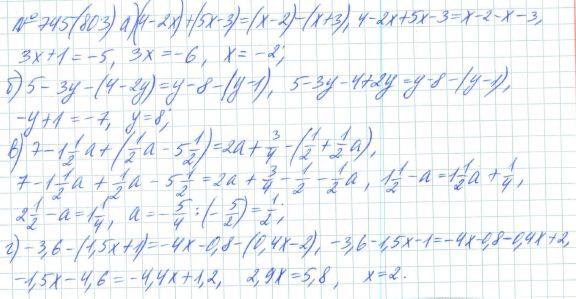 № 745(803) а)(4-2x)+(5x-3)=(x-2)-(x+3), 4-2x+5x-3=x-2-x-3,
3x+1=-5, 3x=-6, x=-2;
б) 5-3y-(4-2y)=y-8-(y-1), 5-3y-4+2y=y-8-(y-1),
-y+1=-7, y=8;
в) 7-1 1/2 a+(1/2 a-5 1/2)=2a+3/4-(1/2+1/2 a),
7-1 1/2 a+1/2 a-5 1/2=2a+3/4-1/2-1/2 a, 1 1/2-a=1 1/2 a+1/4,
2 1/2-a=1 1/4, a=-5/4:(-5/2)=1/2;
г) -3,6-(1,5x+1)=-4x-0,8-(0,4x-2), -3,6-1,5x-1=-4x-0,8-0,4x+2,
-1,5x-4,6=-4,4x+1,2, 2,9x=5,8, x=2.